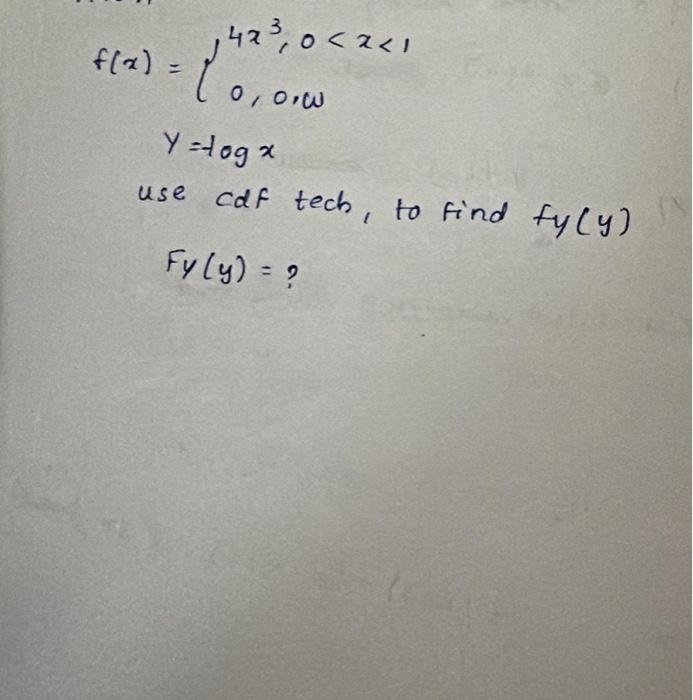 f(x) = { 4x³, 0 < x < 1
0, 0.w
Y = log x
use cdf tech, to find fy(y)
Fy(y) = ?